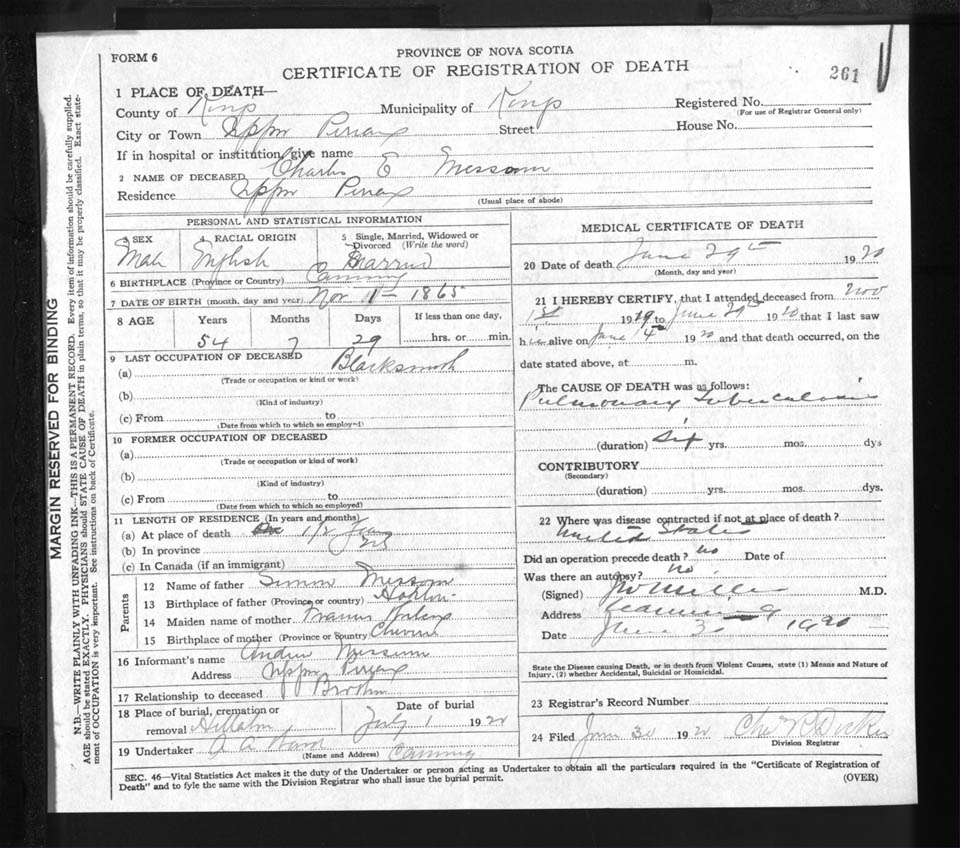 FORM 6
PROVINCE OF NOVA SCOTIA
CERTIFICATE OF REGISTRATION OF DEATH
261
1 PLACE OF DEATH—
County of Kings Municipality of Kings Registered No.
(For use of Registrar General only)
City or Town Upper Pereau Street House No.
If in hospital or institution, give name
2 NAME OF DECEASED Charles E Messom
Residence Upper Pereau
(Usual place of abode)
PERSONAL AND STATISTICAL INFORMATION
3 SEX Male
4 RACIAL ORIGIN English
5 Single, Married, Widowed or Divorced (Write the word) Married
6 BIRTHPLACE (Province or Country) Canning
7 DATE OF BIRTH (month, day and year) Nov. 1 - 1865
8 AGE Years Months Days If less than one day,
54 7 29 hrs. or min.
9 LAST OCCUPATION OF DECEASED
(a) Blacksmith
(Trade or occupation or kind or work)
(b)
(Kind of industry)
(c) From to
(Date from which to which so employed)
10 FORMER OCCUPATION OF DECEASED
(a)
(Trade or occupation or kind of work)
(b)
(Kind of industry)
(c) From to
(Date from which to which so employed)
11 LENGTH OF RESIDENCE (In years and months)
(a) At place of death 1/2 year
(b) In province
(c) In Canada (if an immigrant)
Parents
12 Name of father Simon Messom
13 Birthplace of father (Province or country) Horton
14 Maiden name of mother
15 Birthplace of mother (Province or Country)
16 Informant's name Andrew Messom
Address Upper Pereau
17 Relationship to deceased Brother
18 Place of burial, cremation or removal Hillaton
Date of burial July 1 1920
19 Undertaker
(Name and Address) Canning
MEDICAL CERTIFICATE OF DEATH
20 Date of death June 29th 1920
(Month, day and year)
21 I HEREBY CERTIFY, that I attended deceased from Nov
1st 1919 to June 29th 1920 that I last saw
him alive on June 4th 1920 and that death occurred, on the
date stated above, at m.
The CAUSE OF DEATH was as follows:
Pulmonary Tuberculosis
(duration) Six yrs. mos. dys
CONTRIBUTORY
(Secondary)
(duration) yrs. mos. dys.
22 Where was disease contracted if not at place of death?
United States
Did an operation precede death? no Date of
Was there an autopsy? no
(Signed) Miller M.D.
Address Canning
Date June 30 1920
State the Disease causing Death, or in death from Violent Causes, state (1) Means and Nature of
Injury, (2) whether Accidental, Suicidal or Homicidal.
23 Registrar's Record Number
24 Filed June 30 192
Division Registrar
SEC. 46—Vital Statistics Act makes it the duty of the Undertaker or person acting as Undertaker to obtain all the particulars required in the "Certificate of Registration of
Death" and to fyle the same with the Division Registrar who shall issue the burial permit. (OVER)
MARGIN RESERVED FOR BINDING
N.B.—WRITE PLAINLY WITH UNFADING INK—THIS IS A PERMANENT RECORD. Every item of information should be carefully supplied.
AGE should be stated EXACTLY. PHYSICIANS should STATE CAUSE OF DEATH in plain terms, so that it may be properly classified. Exact state-
ment of OCCUPATION is very important. See instructions on back of Certificate.